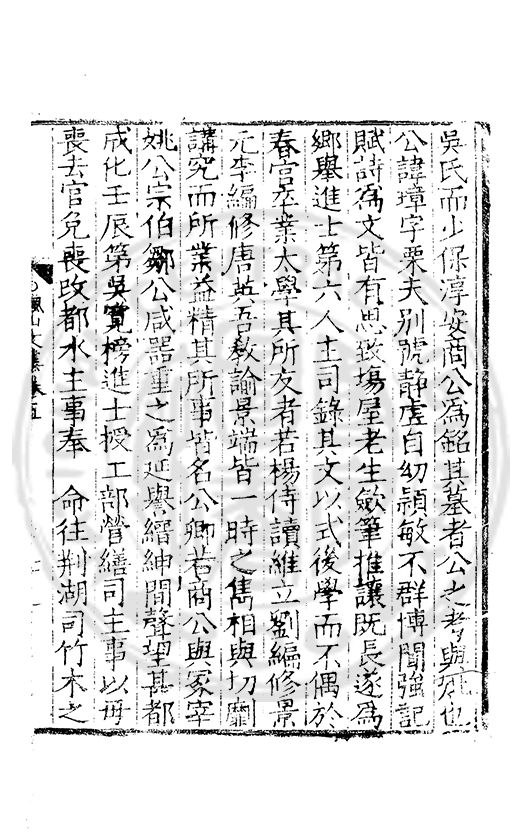 吳氏而少保淳安商公為銘其墓者公之考與妣也
公諱璋字栗夫别號静虛自幼頴敏不群博聞強記
賦詩為文皆有思致塲屋老生歛筆推讓既長遂為
鄉舉進士第六人主司錄其文以式後學而不偶於
春官卒業太學其所友者若楊侍讀維立劉編修景
元李編修唐㑹吾教諭景端皆一時之雋相與切劘
講究而所業益精其所事皆名公卿若商公與冢宰
姚公宗伯鄒公咸噐重之為延譽縉紳間聲望甚都
成化壬辰第吳寬榜進士授工部營繕司主事以母
喪去官免喪改都水主事奉 命往荆湖司竹木之
山文集卷五